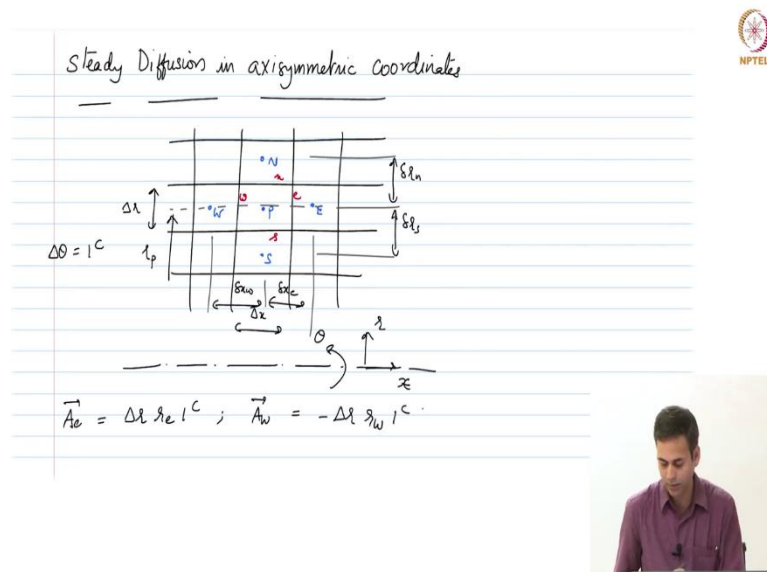 Steady Diffusion in axisymmetric coordinates
NPTEL
N
δr_n
n
Δr
w
e
W
P
E
s
δr_s
Δθ = 1^c
r_p
S
δx_w
δx_e
Δx
θ
r
x
A⃗_e = Δr r_e 1^c ; A⃗_w = -Δr r_w 1^c